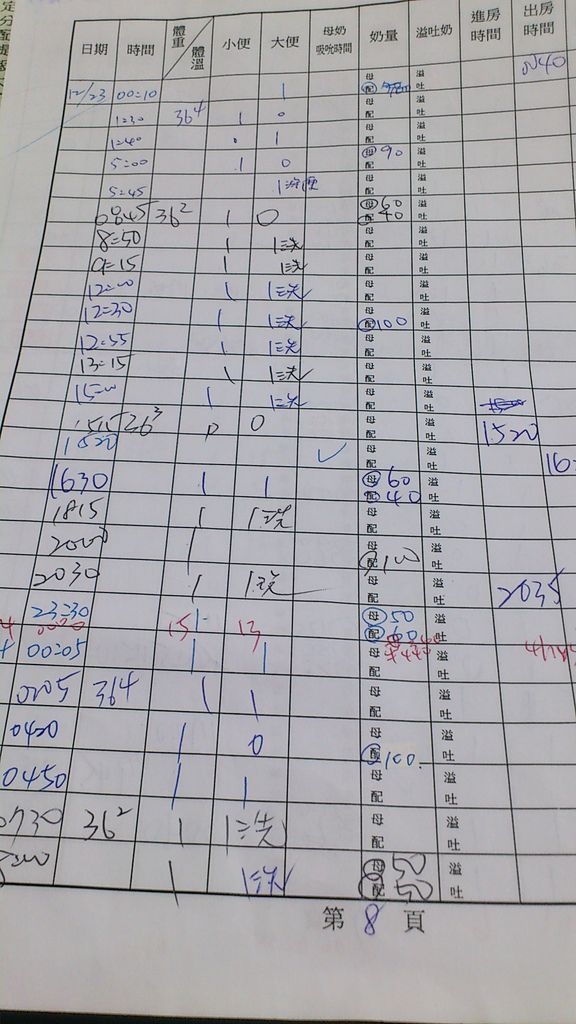 日期 時間 體重 體溫 小便 大便 母奶吸吮時間 奶量 溢吐奶 進房時間 出房時間
母 溢 0040
12/23 00:10 1 配 吐
1:30 36⁴ 1 0 母 溢 配 吐
1:40 1 母 溢 配 吐
5:00 1 0 母90 溢 配 吐
5:45 1 母 溢 配 吐
0845 36² 1 0 母60 溢 配40 吐
8:50 1 1洗 母 溢 配 吐
9:15 1 1洗 母 溢 配 吐
12:00 1 1洗 母 溢 配 吐
12:30 1 1洗 母 溢 配100 吐
12:55 1 1洗 母 溢 配 吐
13:15 1 1洗 母 溢 配 吐
15:00 1 1洗 母 溢 配 吐
1515 36³ 0 0 母 溢 配 吐 1520
1520 ✓ 母 溢 配 吐
1630 1 1 母60 溢 配40 吐
1815 1 1洗 母 溢 配 吐
2000 1 母 溢 配100 吐
2030 1 1洗 母 溢 配 吐 2035
23:30 1 母50 溢 配60 吐
15 13
00:05 1 1 母 溢 配 吐
0205 36⁴ 1 1 母 溢 配 吐
0420 1 0 母 溢 配100. 吐
0450 1 1 母 溢 配 吐
0730 36² 1 1洗 母 溢 配 吐
1 1洗 母50 溢 配50 吐
第 8 頁